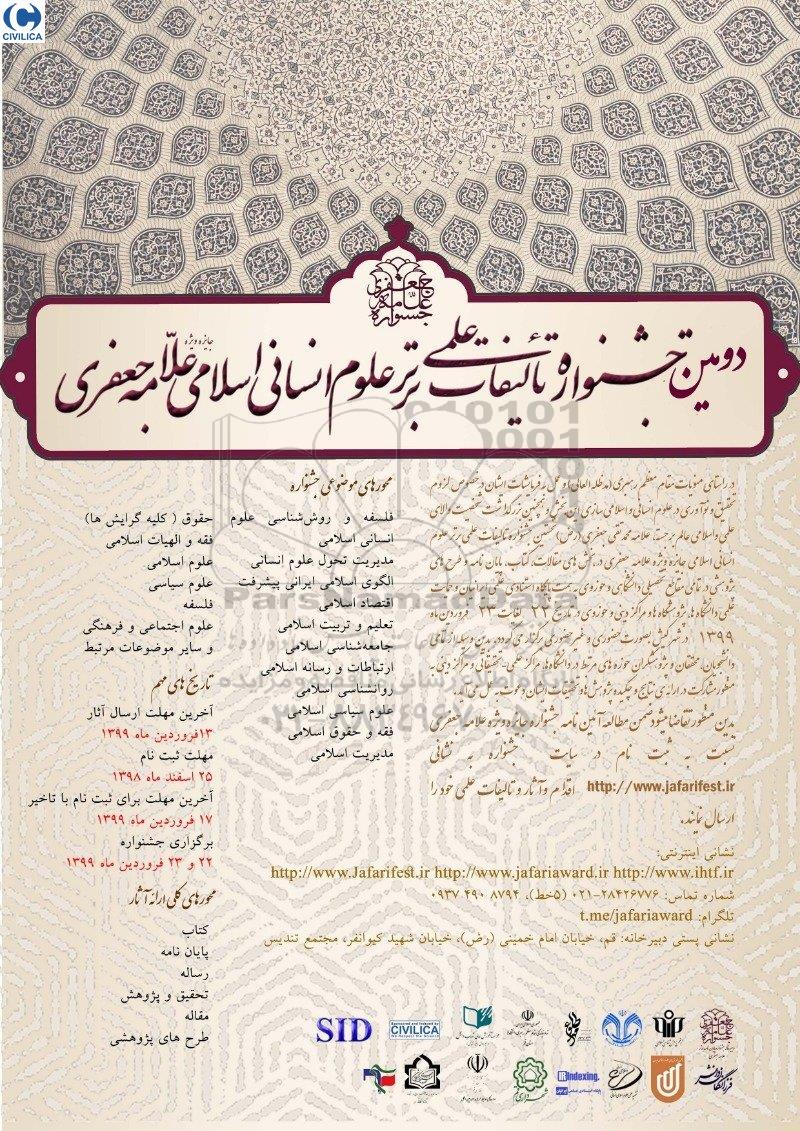 CIVILICA
جشنواره علامه جعفری
دومین جشنواره تألیفات علمی برتر علوم انسانی اسلامی جایزه ویژه علامه جعفری
در راستای منویات مقام معظم رهبری (مدظله العالی) و عمل به فرمایشات ایشان در خصوص لزوم
تحقیق و نوآوری در علوم انسانی و اسلامی سازی این بخش و همچنین بزرگداشت شخصیت والای
علمی و اسلامی عالم برجسته علامه محمد تقی جعفری (رض)
انسانی اسلامی جایزه ویژه علامه جعفری، در بخش های مقالات، کتاب، پایان نامه و طرح های
پژوهشی در تمامی مقاطع تحصیلی دانشگاهی و حوزوی
علمی دانشگاه ها، پژوهشگاه ها و مراکز دینی و حوزوی در تاریخ ۲۲ لغایت ۲۳ فروردین ماه
۱۳۹۹ در شهر بصورت حضوری و غیر حضوری برگزار می گردد. بدین وسیله از تمامی
دانشجویان، محققان و پژوهشگران حوزه های مرتبط در دانشگاه ها، مراکز علمی-تحقیقاتی و مراکز دینی به
منظور مشارکت در ارائه ی نتایج و چکیده پژوهش ها و تحقیقات ایشان دعوت به عمل می آید.
بدین منظور تقاضا میشود ضمن مطالعه آئین نامه جشنواره جایزه ویژه علامه جعفری
نسبت به ثبت نام در سایت جشنواره به نشانی
http://www.jafarifest.ir اقدام و آثار و تالیفات علمی خود را
ارسال نمایند.
محورهای موضوعی جشنواره
فلسفه و روش‌شناسی علوم
انسانی اسلامی
مدیریت تحول علوم انسانی
الگوی اسلامی ایرانی پیشرفت
اقتصاد اسلامی
تعلیم و تربیت اسلامی
جامعه‌شناسی اسلامی
ارتباطات و رسانه اسلامی
روانشناسی اسلامی
علوم سیاسی اسلامی
فقه و حقوق اسلامی
مدیریت اسلامی
حقوق ( کلیه گرایش ها)
فقه و الهیات اسلامی
علوم اسلامی
علوم سیاسی
فلسفه
علوم اجتماعی و فرهنگی
و سایر موضوعات مرتبط
تاریخ های مهم
آخرین مهلت ارسال آثار
۱۳فروردین ماه ۱۳۹۹
مهلت ثبت نام
۲۵ اسفند ماه ۱۳۹۸
آخرین مهلت برای ثبت نام با تاخیر
۱۷ فروردین ماه ۱۳۹۹
برگزاری جشنواره
۲۲ و ۲۳ فروردین ماه ۱۳۹۹
محورهای کلی ارائه آثار
کتاب
پایان نامه
رساله
تحقیق و پژوهش
مقاله
طرح های پژوهشی
نشانی اینترنتی:
http://www.Jafarifest.ir http://www.jafariaward.ir http://www.ihtf.ir
شماره تماس: ۲۸۴۲۶۷۷۶-۰۲۱ (۵خط)، ۸۷۹۴ ۴۹۰ ۰۹۳۷
تلگرام: t.me/jafariaward
نشانی پستی دبیرخانه: قم، خیابان امام خمینی (رض)، خیابان شهید کیوانفر، مجتمع تندیس
ParsNamadData
پایگاه اطلاع رسانی مناقصه و مزایده
۰۲۱-۸۸۳۴۹۶۷۰-۵
SID
CIVILICA
IRIndexing
شهرداری